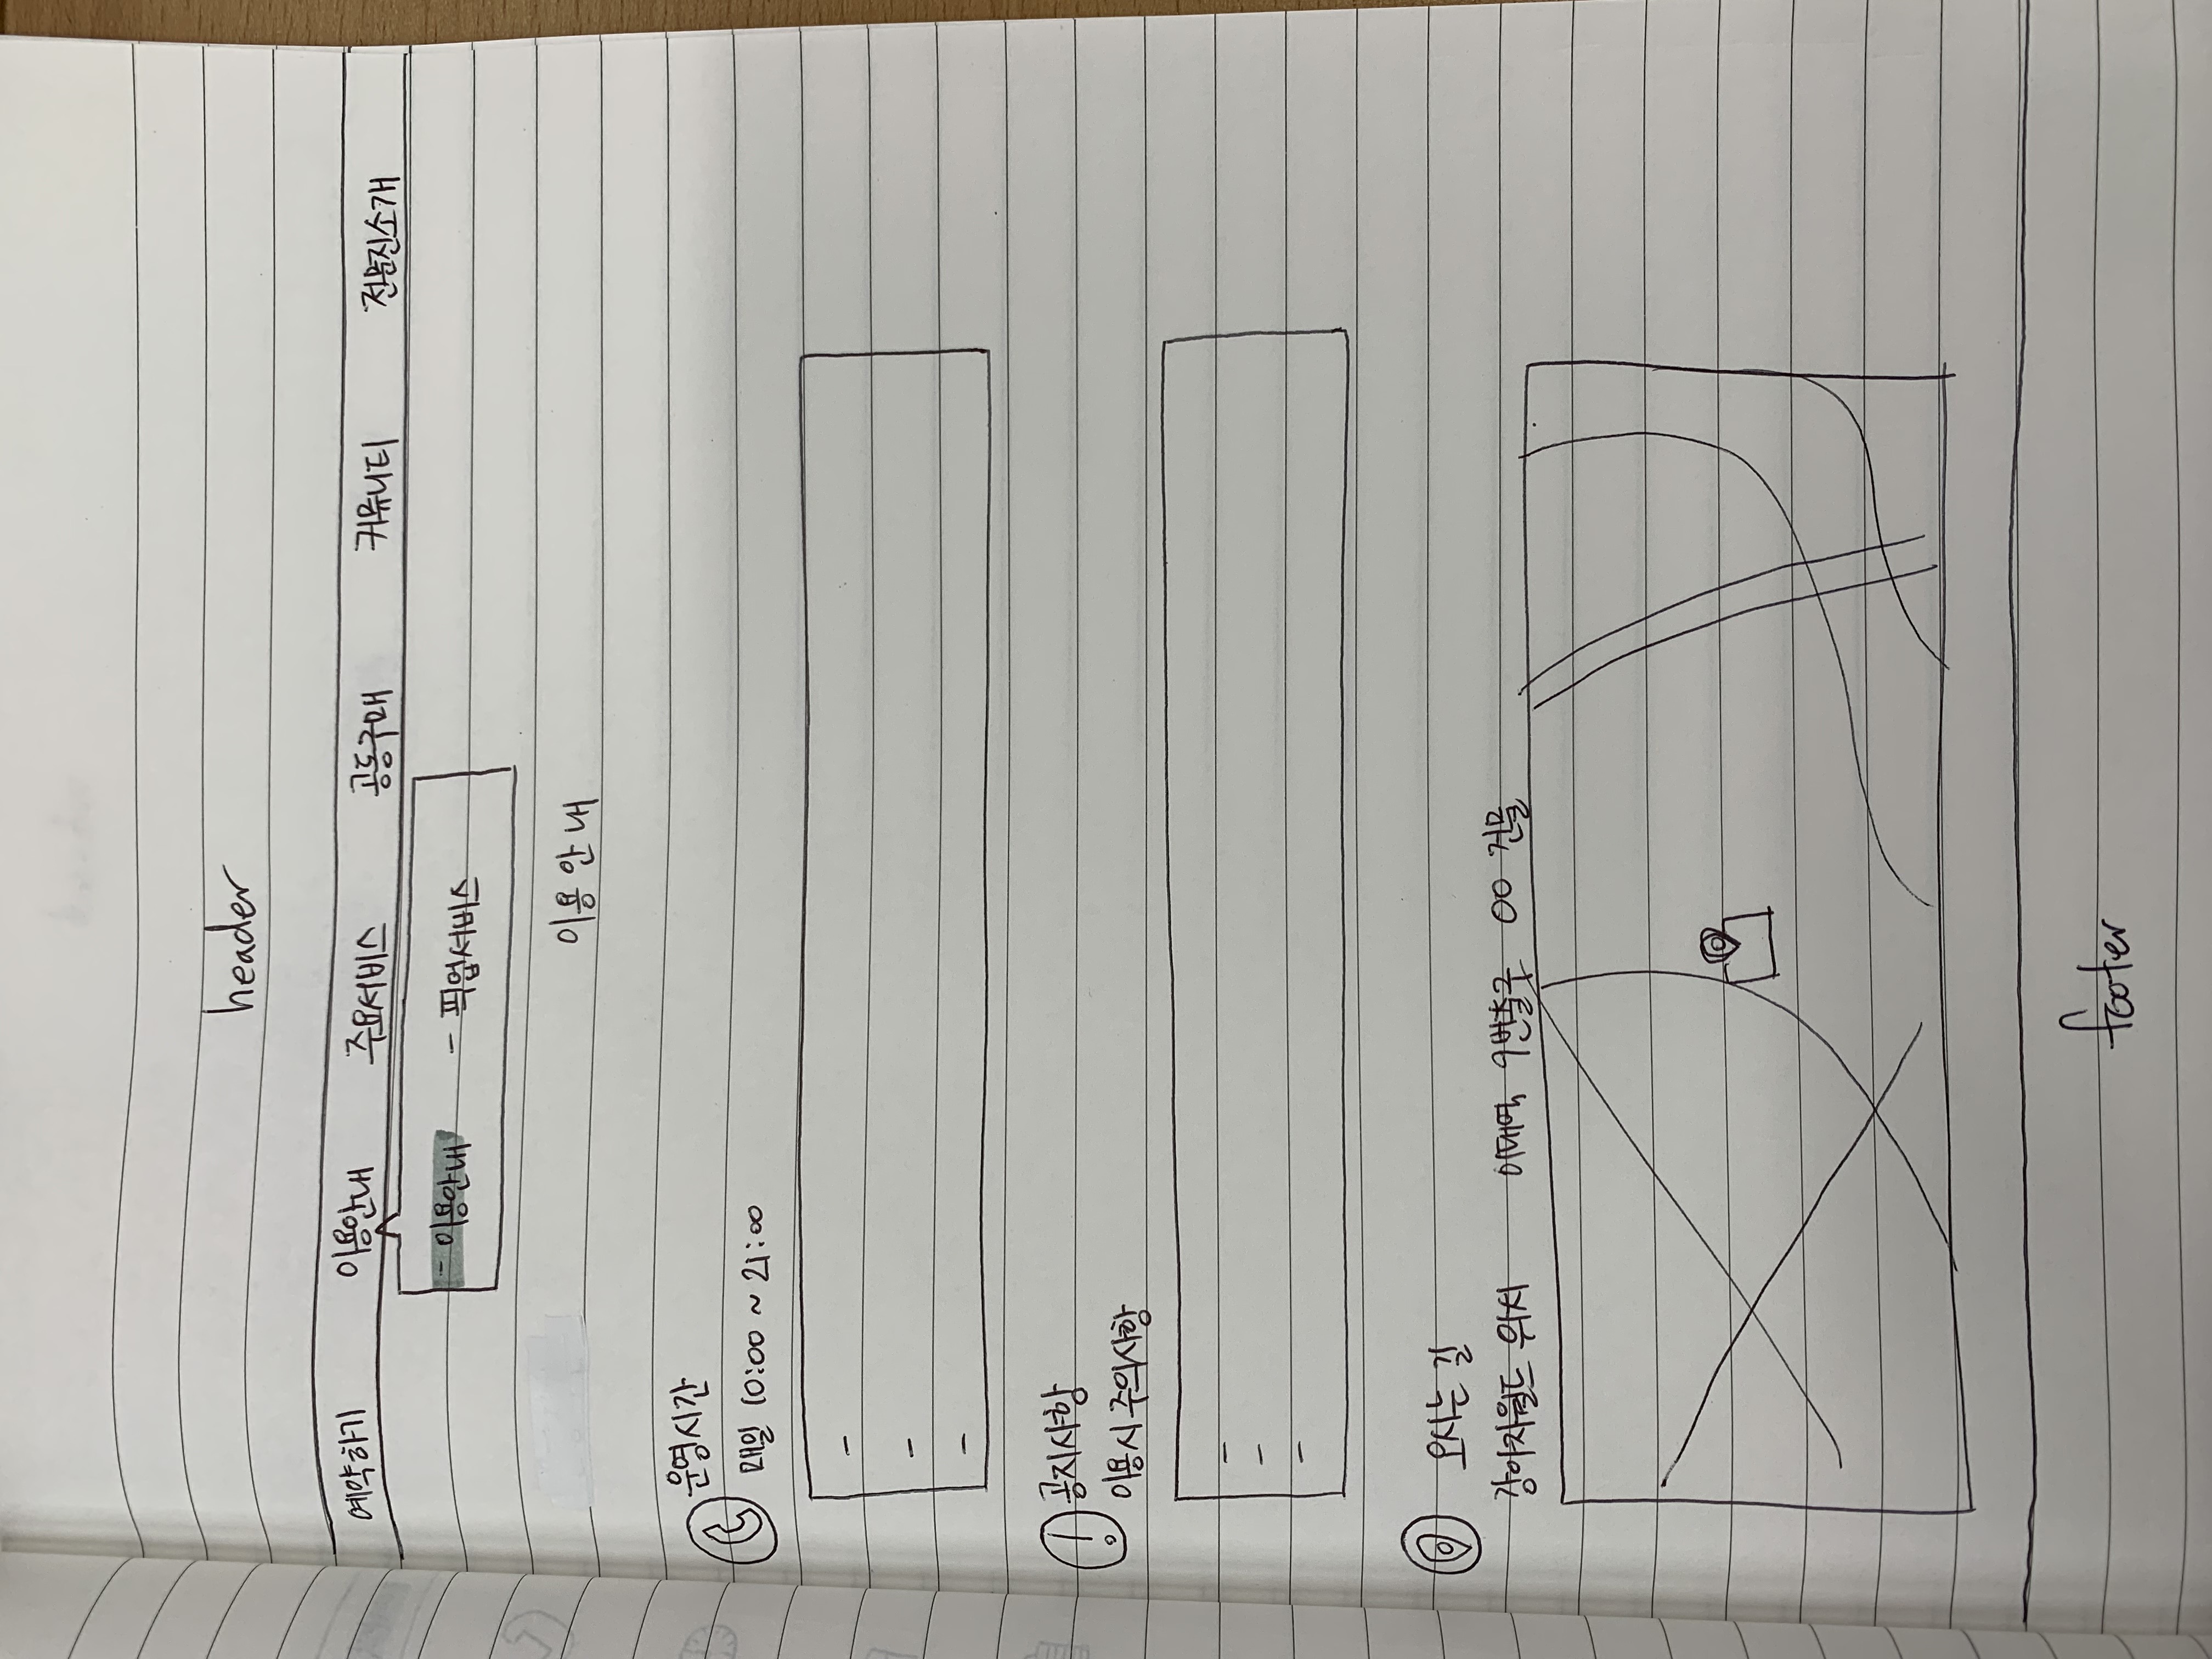 header
예약하기 이용안내 주요서비스 공동구매 커뮤니티 전문진소개
- 이용안내 - 픽업서비스
이용안내
운영시간
매일 10:00 ~ 21:00
-
-
-
!
공지사항
이용시 주의사항
-
-
-
오시는 길
강아지월드 위치 이대역 9번출구 00 건물
footer